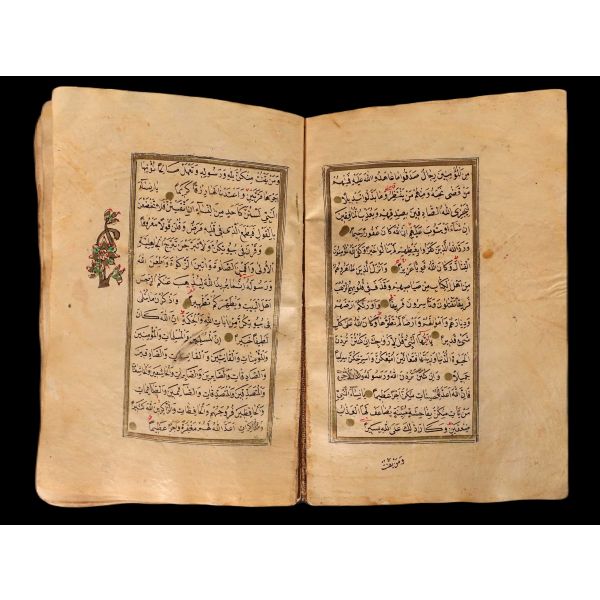 مِنَ الْمُؤْمِنِينَ رِجَالٌ صَدَقُوا مَا عَاهَدُوا اللَّهَ عَلَيْهِ فَمِنْهُمْ
مَنْ قَضَى نَحْبَهُ وَمِنْهُمْ مَنْ يَنْتَظِرُ وَمَا بَدَّلُوا تَبْدِيلًا
لِيَجْزِيَ اللَّهُ الصَّادِقِينَ بِصِدْقِهِمْ وَيُعَذِّبَ الْمُنَافِقِينَ
إِنْ شَاءَ أَوْ يَتُوبَ عَلَيْهِمْ إِنَّ اللَّهَ كَانَ غَفُورًا رَحِيمًا
وَرَدَّ اللَّهُ الَّذِينَ كَفَرُوا بِغَيْظِهِمْ لَمْ يَنَالُوا خَيْرًا وَكَفَى اللَّهُ الْمُؤْمِنِينَ
الْقِتَالَ وَكَانَ اللَّهُ قَوِيًّا عَزِيزًا وَأَنْزَلَ الَّذِينَ ظَاهَرُوهُمْ
مِنْ أَهْلِ الْكِتَابِ مِنْ صَيَاصِيهِمْ وَقَذَفَ فِي قُلُوبِهِمُ الرُّعْبَ
فَرِيقًا تَقْتُلُونَ وَتَأْسِرُونَ فَرِيقًا وَأَوْرَثَكُمْ أَرْضَهُمْ
وَدِيَارَهُمْ وَأَمْوَالَهُمْ وَأَرْضًا لَمْ تَطَئُوهَا وَكَانَ اللَّهُ عَلَى كُلِّ
شَيْءٍ قَدِيرًا يَا أَيُّهَا النَّبِيُّ قُلْ لِأَزْوَاجِكَ إِنْ كُنْتُنَّ تُرِدْنَ
الْحَيٰوةَ الدُّنْيَا وَزِينَتَهَا فَتَعَالَيْنَ أُمَتِّعْكُنَّ وَأُسَرِّحْكُنَّ سَرَاحًا
جَمِيلًا وَإِنْ كُنْتُنَّ تُرِدْنَ اللَّهَ وَرَسُولَهُ وَالدَّارَ الْآخِرَةَ
فَإِنَّ اللَّهَ أَعَدَّ لِلْمُحْسِنَاتِ مِنْكُنَّ أَجْرًا عَظِيمًا يَا نِسَاءَ النَّبِيِّ
مَنْ يَأْتِ مِنْكُنَّ بِفَاحِشَةٍ مُبَيِّنَةٍ يُضَاعَفْ لَهَا الْعَذَابُ
ضِعْفَيْنِ وَكَانَ ذَلِكَ عَلَى اللَّهِ يَسِيرًا
وَمَنْ يَقْنُتْ
وَمَنْ يَقْنُتْ مِنْكُنَّ لِلَّهِ وَرَسُولِهِ وَتَعْمَلْ صَالِحًا نُؤْتِهَا
أَجْرَهَا مَرَّتَيْنِ وَأَعْتَدْنَا لَهَا رِزْقًا كَرِيمًا يَا نِسَاءَ
النَّبِيِّ لَسْتُنَّ كَأَحَدٍ مِنَ النِّسَاءِ إِنِ اتَّقَيْتُنَّ فَلَا تَخْضَعْنَ
بِالْقَوْلِ فَيَطْمَعَ الَّذِي فِي قَلْبِهِ مَرَضٌ وَقُلْنَ قَوْلًا مَعْرُوفًا
وَقَرْنَ فِي بُيُوتِكُنَّ وَلَا تَبَرَّجْنَ تَبَرُّجَ الْجَاهِلِيَّةِ
الْأُولَى وَأَقِمْنَ الصَّلٰوةَ وَآتِينَ الزَّكٰوةَ وَأَطِعْنَ اللَّهَ
وَرَسُولَهُ إِنَّمَا يُرِيدُ اللَّهُ لِيُذْهِبَ عَنْكُمُ الرِّجْسَ
أَهْلَ الْبَيْتِ وَيُطَهِّرَكُمْ تَطْهِيرًا وَاذْكُرْنَ مَا يُتْلَى
فِي بُيُوتِكُنَّ مِنْ آيَاتِ اللَّهِ وَالْحِكْمَةِ إِنَّ اللَّهَ كَانَ
لَطِيفًا خَبِيرًا إِنَّ الْمُسْلِمِينَ وَالْمُسْلِمَاتِ وَالْمُؤْمِنِينَ
وَالْمُؤْمِنَاتِ وَالْقَانِتِينَ وَالْقَانِتَاتِ وَالصَّادِقِينَ
وَالصَّادِقَاتِ وَالصَّابِرِينَ وَالصَّابِرَاتِ وَالْخَاشِعِينَ وَالْخَاشِعَاتِ
وَالْمُتَصَدِّقِينَ وَالْمُتَصَدِّقَاتِ وَالصَّائِمِينَ وَالصَّائِمَاتِ
وَالْحَافِظِينَ فُرُوجَهُمْ وَالْحَافِظَاتِ وَالذَّاكِرِينَ اللَّهَ كَثِيرًا
وَالذَّاكِرَاتِ أَعَدَّ اللَّهُ لَهُمْ مَغْفِرَةً وَأَجْرًا عَظِيمًا